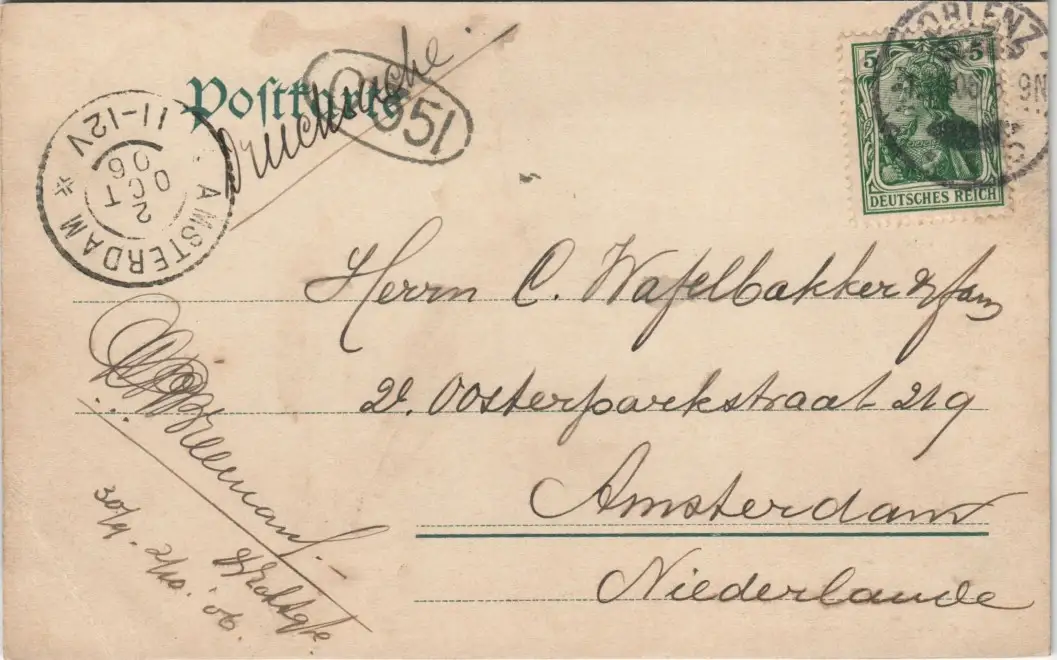 Postkarte
Drucksache.
951
AMSTERDAM
11-12V
2
OCT
06
COBLENZ
5 5
DEUTSCHES REICH
Herrn C. Wafelbakker & fam
2e. Oosterparkstraat 219
Amsterdam
Niederlande
30/9. 2/10. '06.